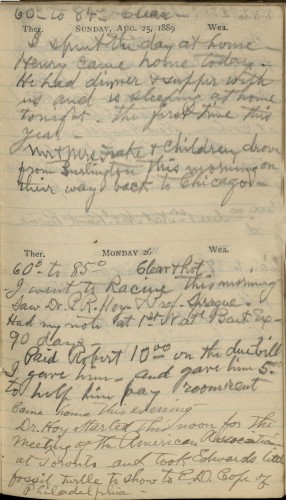 60° to 84° Clear
Ther. SUNDAY, AUG. 25, 1889 Wea.
I spent the day at home -
Henry came home today -
He had dinner & supper with
us and is sleeping at home
tonight - the first time this
year -
Mr & Mrs Drake & Children drove
from Burlington this morning on
their way back to Chicago -
Ther. MONDAY 26 Wea.
60° to 85° Clear & hot
I went to Racine this morning
Saw Dr. P.R. Hoy & Prof. Sprague.
Had my note at 1st Nat Bank Ex-
90 days
Paid Robert 10.00 on the due bill
I gave him - and gave him 5.00
to help him pay room rent
Came home this evening
Dr. Hoy started this noon for the
meeting of the American Association
at Toronto and took Edwards little
fossil turtle to show to E.D. Cope of
Philadelphia -